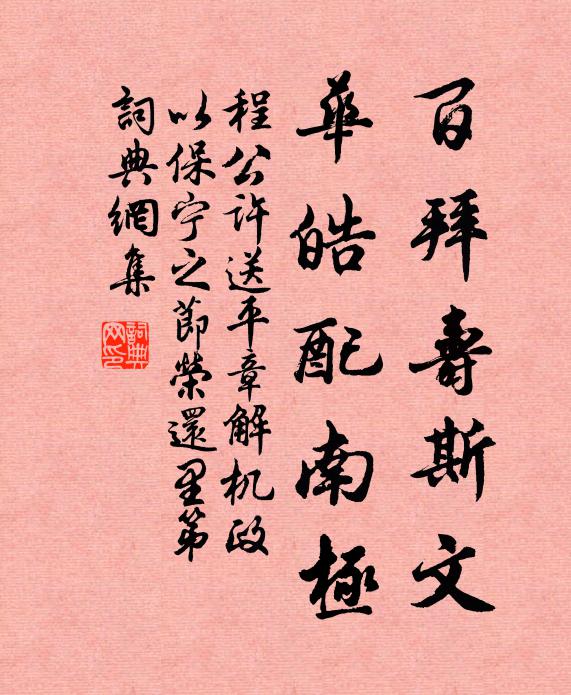 百拜壽斯文
華皓配南極
程公許送平章解机政
以保宁之節榮還里第
詞典網集
詞典网印